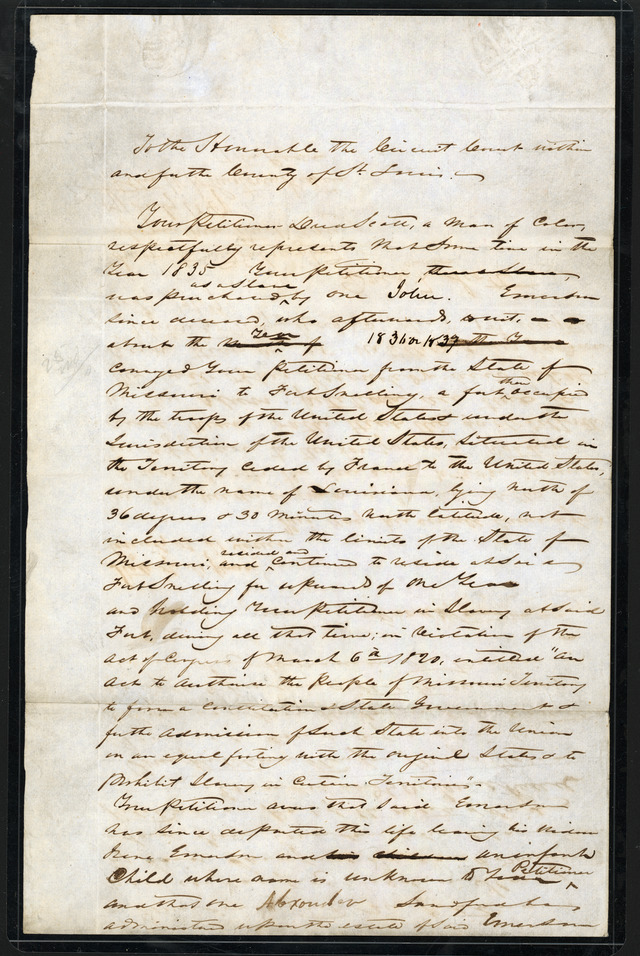 To the Honorable the Circuit Court within
and for the County of St. Louis.
Your Petitioner Dred Scott, a man of Color,
respectfully represents that some time in the
Year 1835 Your Petitioner
as a Slave
was purchased by one John. Emerson
since deceased, who afterwards, to wit,
Year
about the 1836 or 1837
conveyed Your Petitioner from the State of
then
Missouri to Fort Snelling, a fort occupied
by the troops of the United States & under the
Jurisdiction of the United States, Situated in
the Territory ceded by France to the United States,
under the name of Louisiana, lying north of
36 degrees & 30 minutes North latitude, not
included within the limits of the State of
resided and
Missouri, and continued to reside at said
Fort Snelling for upwards of one Year
and holding Your Petitioner in Slavery at Said
Fort, during all that time; in violation of the
Act of Congress of March 6th 1820, entitled "An
Act to Authorise the People of Missouri Territory
to form a Constitution & State Government &
for the admission of Such State into the Union
on an equal footing with the original States & to
Prohibit Slavery in Certain Territories".
Your Petitioner avers that Said Emerson
has since departed this life leaving his widow
Irene Emerson and an infant
Petitioner
Child whose name is unknown to
and that one Alexander Sandford
administered upon the estate of said Emerson